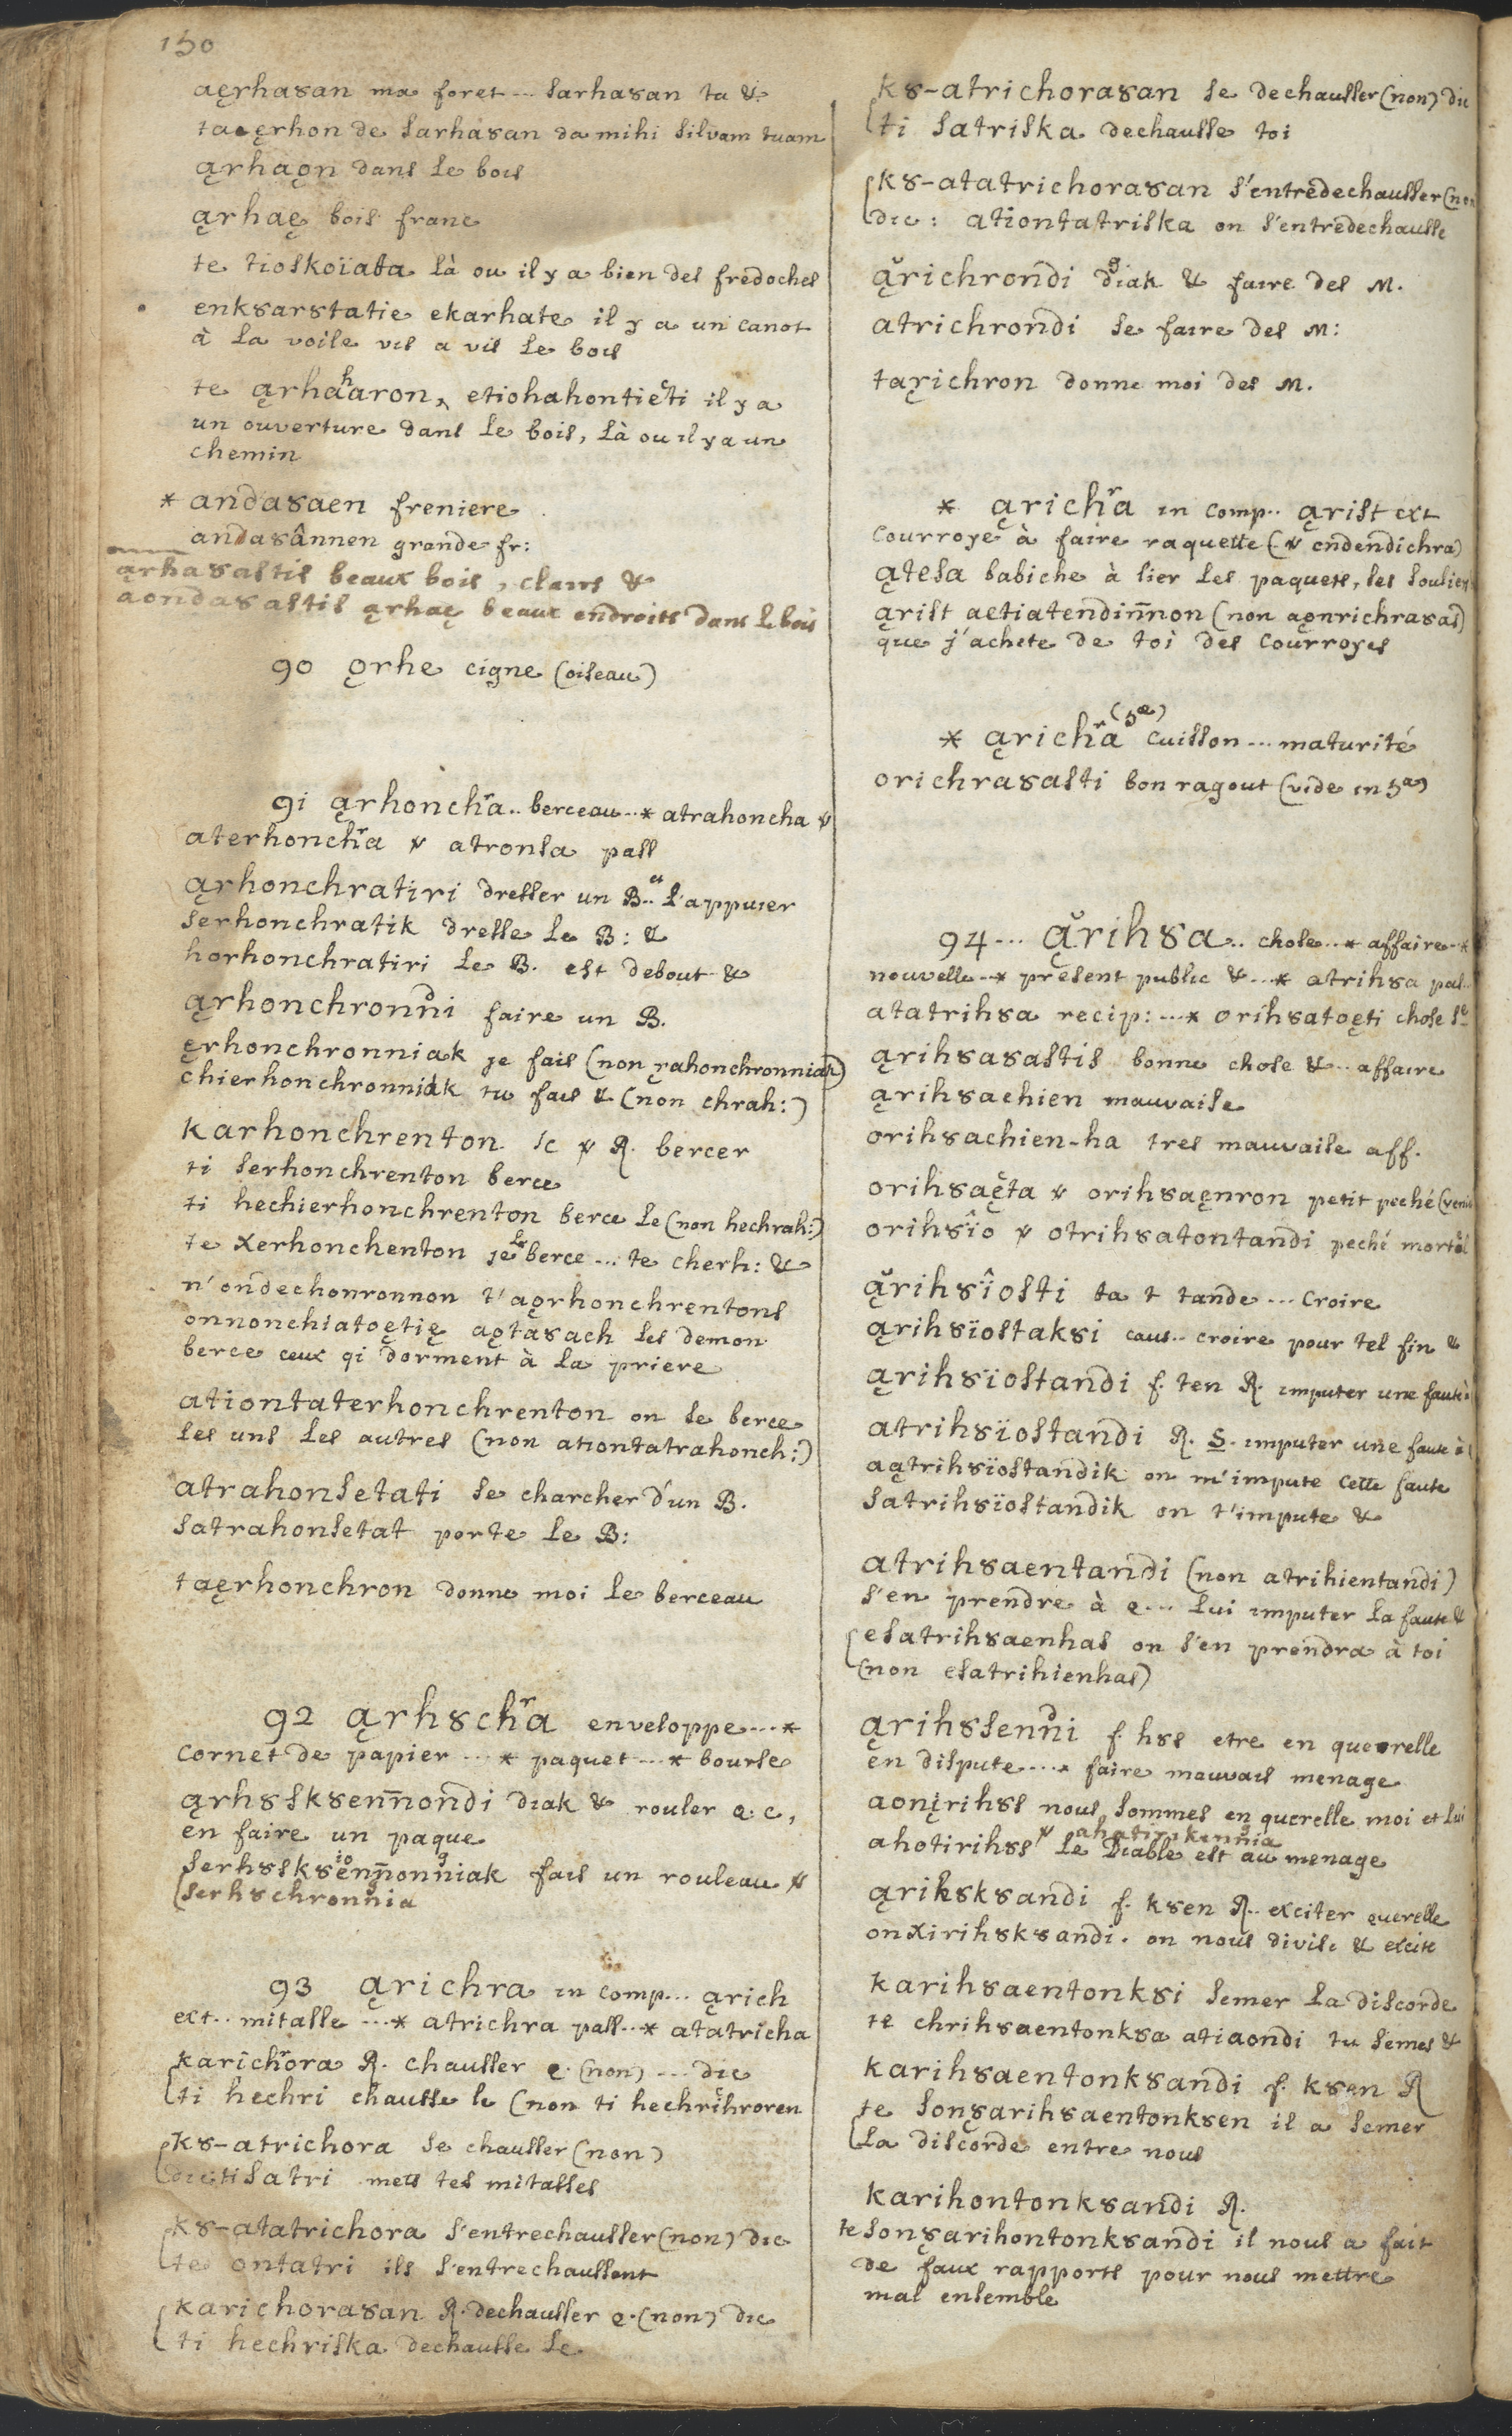 150
aęrhasan ma foret ... sarhasan ta &
taęrhon de sarhasan da mihi silvam tuam
ąrhaǫn dans le bois
ąrhaę bois franc
te tioskoïata là ou il y a bien des fredoches
enksarstatie ekarhate il y a un canot
à la voile vis a vis le bois
te ąrhahaaron, etiohahontieti il y a
un ouverture dans le bois, là ou il y a un
chemin
* andasaen freniere
andasânnen grande fr:
ąrhasastis beaux bois, clairs &
aondasastis ąrhaę beaux endroits dans le bois
90 ǫrhe cigne (oiseau)
91 ąrhonchra .. berceau ..* atrahoncha v
aterhonchra v atronsa pass
ąrhonchratiri dresser un B.. et l'appuier
serhonchratik dresse le B: &
horhonchratiri le B. est debout &
ąrhonchronndi faire un B.
ęrhonchronniak je fais (non ȩrahonchronniak)
chierhonchronniak tu fais & (non chrah:)
karhonchrenton sc v R. bercer
ti serhonchrenton berce
ti hechierhonchrenton berce le (non hechrah:)
te xerhonchenton je le berce ... te cherh: &
n'ondechonronnon t'aǫrhonchrentons
onnonchiatoętię aǫtasach les demon
berce ceux qi dorment à la priere
ationtaterhonchrenton on se berce
les uns les autres (non ationtatrahonch:)
atrahonsetati se charcher d'un B.
satrahonsetat porte le B:
taęrhonchron donne moi le berceau
92 ąrhschra enveloppe ...*
cornet de papier ...* paquet ...* bourse
ąrhsskseñnondi diak & rouler q.c,
en faire un paque
serhsskseñnonniak fais un rouleau v
serhschronnia
93 ąrichra in comp... ąrich
ext.. mitasse ...* atrichra pass..* atatricha
karichrora R. chausser q. (non) ... dic
ti hechri chausse le (non ti hechrihroren
ks-atrichora se chausser (non)
dic ti satri mets tes mitasses
ks-atatrichora s'entrechausser (non) dic
te ontatri ils s'entrechaussent
karichorasan R. dechausser q. (non) dic
ti hechriska dechausse le
ks-atrichorasan se dechausser (non) dic
ti satriska dechausse toi
ks-atatrichorasan s'entredechausser (non
dic: ationtatriska on s'entredechausse
ąrichrondi diak & faire des M.
atrichrondi se faire des M:
tąrichron donne moi des M.
* ąrichra in comp.. ąrist ext
courroye à faire raquette (v endendichra)
ątesa babiche à lier les paquets, les souliers
ąrist aetiatendiñnon (non aǫnrichrasas)
que j'achete de toi des courroyes
* ąrichra (5ᵃ) cuisson ... maturité
orichrasasti bon ragout (vide in 5ᵃ)
94 ... ąrihsa .. chose ..* affaire ..*
nouvelle ..* present public & ...* atrihsa pas..
atatrihsa recip: ...* orihsatoęti chose s.te
ąrihsasastis bonne chose & .. affaire
ąrihsachien mauvaise
orihsachien-ha tres mauvaise aff.
orihsaęta v orihsaęnron petit peché (veni
orihsîo v otrihsatontandi peché mortel
ąrihsîosti ta t tande ... croire
ąrihsïostaksi caus.. croire pour tel fin &
ąrihsïostandi f. ten R. imputer une faute à
atrihsïostandi R. S. imputer une faute à
aątrihsïostandik on m'impute cette faute
satrihsïostandik on t'impute &
atrihsaentandi (non atrihientandi)
s'en prendre à q ... lui imputer la faute &
esatrihsaenhas on s'en prendra à toi
(non esatrihienhas)
ąrihssenndi f. hss etre en querelle
en dispute ....* faire mauvais menage
aonįrihss nous sommes en querelle moi et lui
ahotirihss v ahatirikennia le Diable est au menage
ąrihsksandi f. ksen R.. exciter querelle
onxirihsksandi. on nous divise & excite
karihsaentonksi semer la discorde
te chrihsaentonksa atiaondi tu semes &
karihsaentonksandi f. ksen R
te sonȩarihsaentonksen il a semer
la discorde entre nous
karihontonksandi R.
te sonȩarihontonksandi il nous a fait
de faux rapports pour nous mettre
mal ensemble